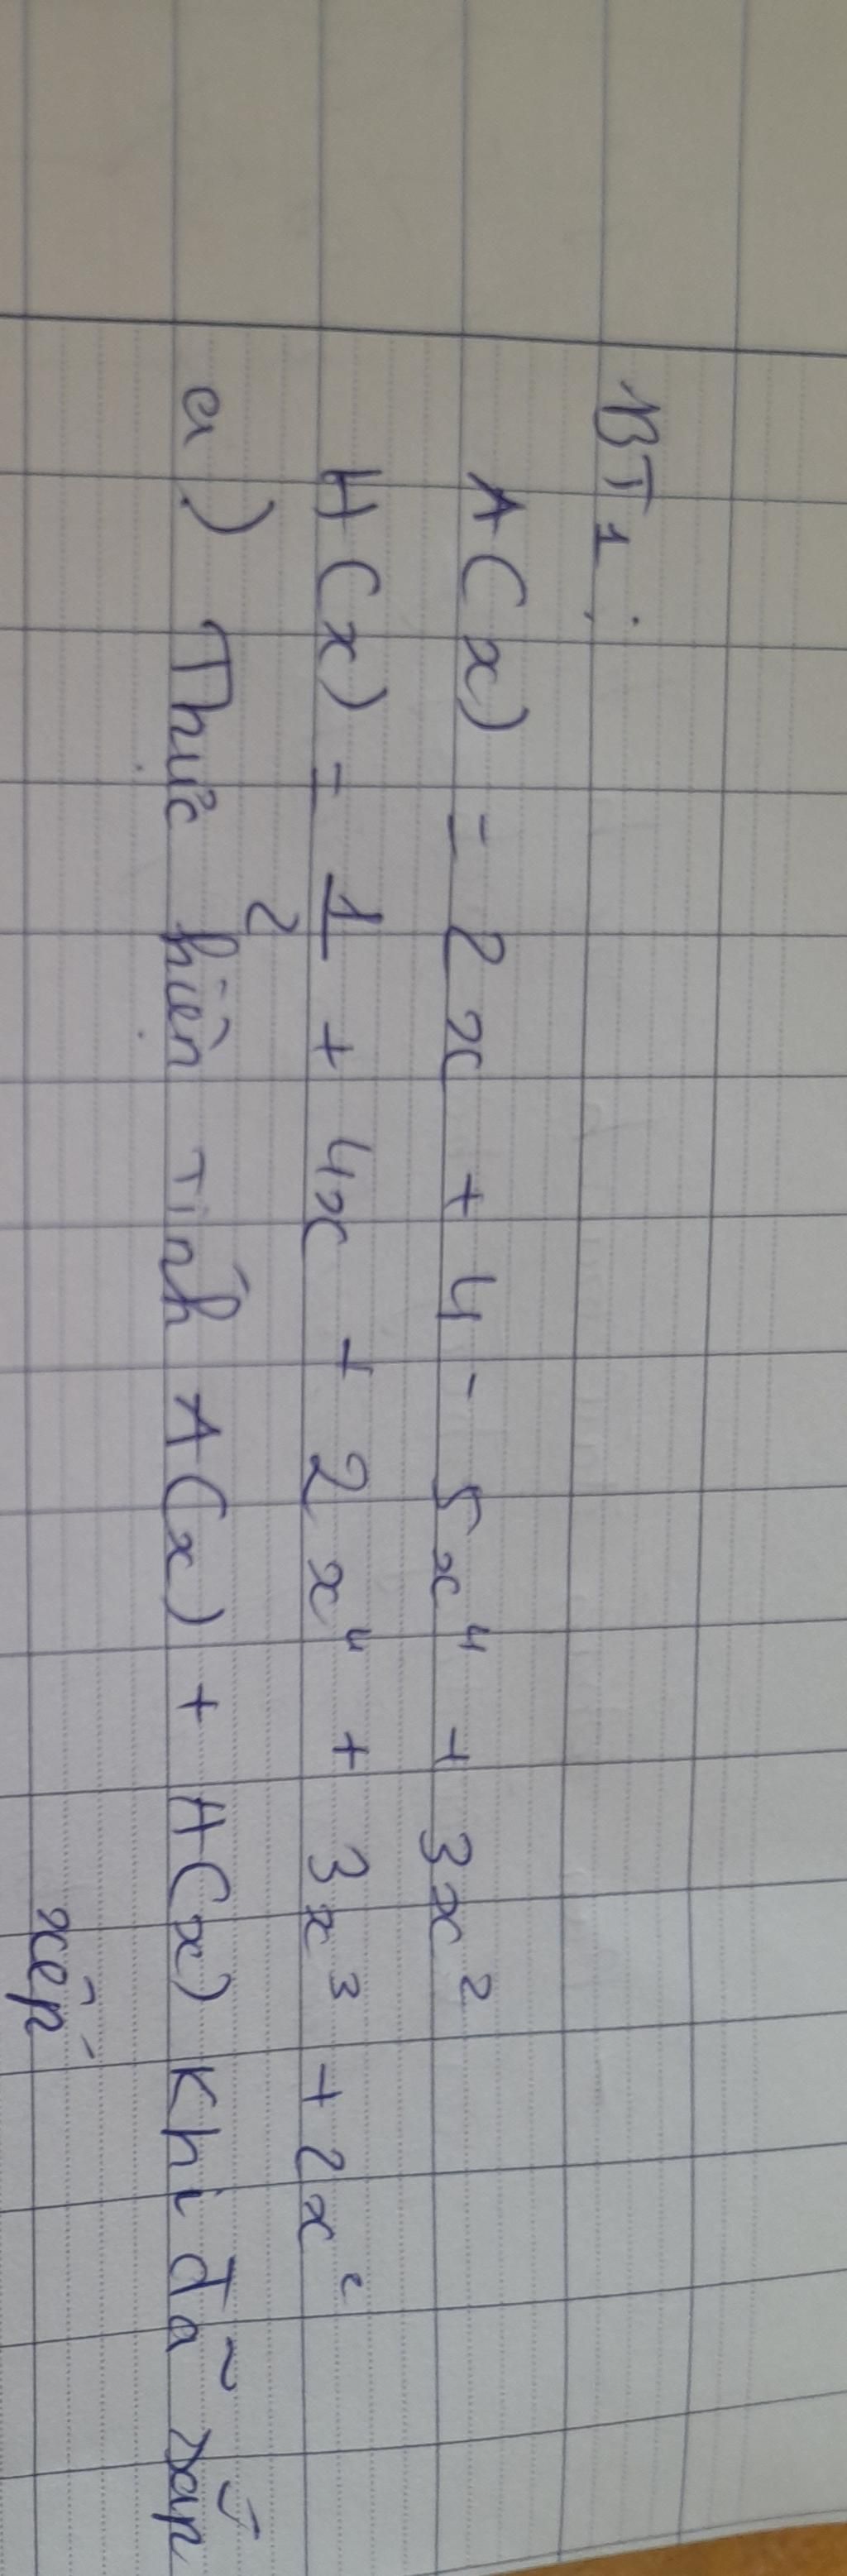 BT1:
A(x) = 2x + 4 - 5x⁴ + 3x²
H(x) = 1/2 + 4x + 2x⁴ + 3x³ + 2x²
a) Thực hiện tính A(x) + H(x) khi đã sắp
xếp